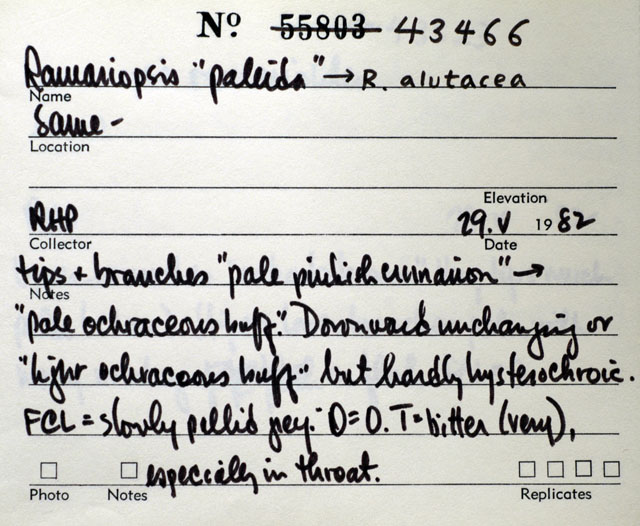 Nº 55803 43466
Ramariopsis "pallida" → R. alutacea
Name
Same -
Location
Elevation
RHP 29.V 1982
Collector Date
tips + branches "pale pinkish cinnamon" →
Notes
"pale ochraceous buff." Downward unchanging or
"light ochraceous buff" but hardly hysterochroic.
FCL = slowly pallid grey. O=O. T=bitter (very),
especially in throat.
Photo Notes Replicates